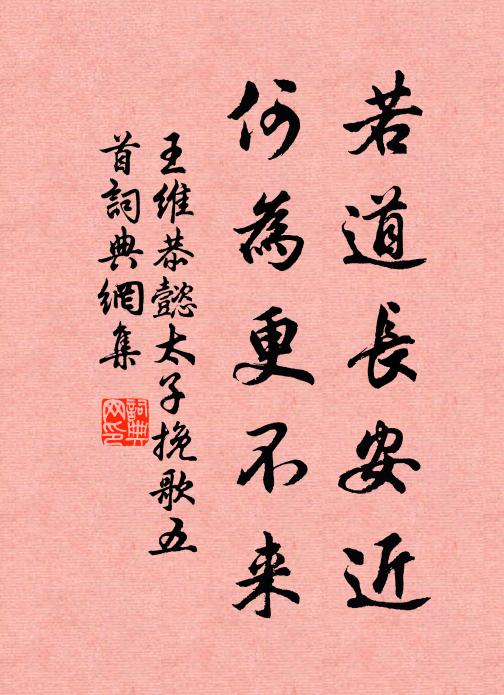 若道長安近
何為更不来
王維恭懿太子挽歌五
首詞典網集
詞典
网印